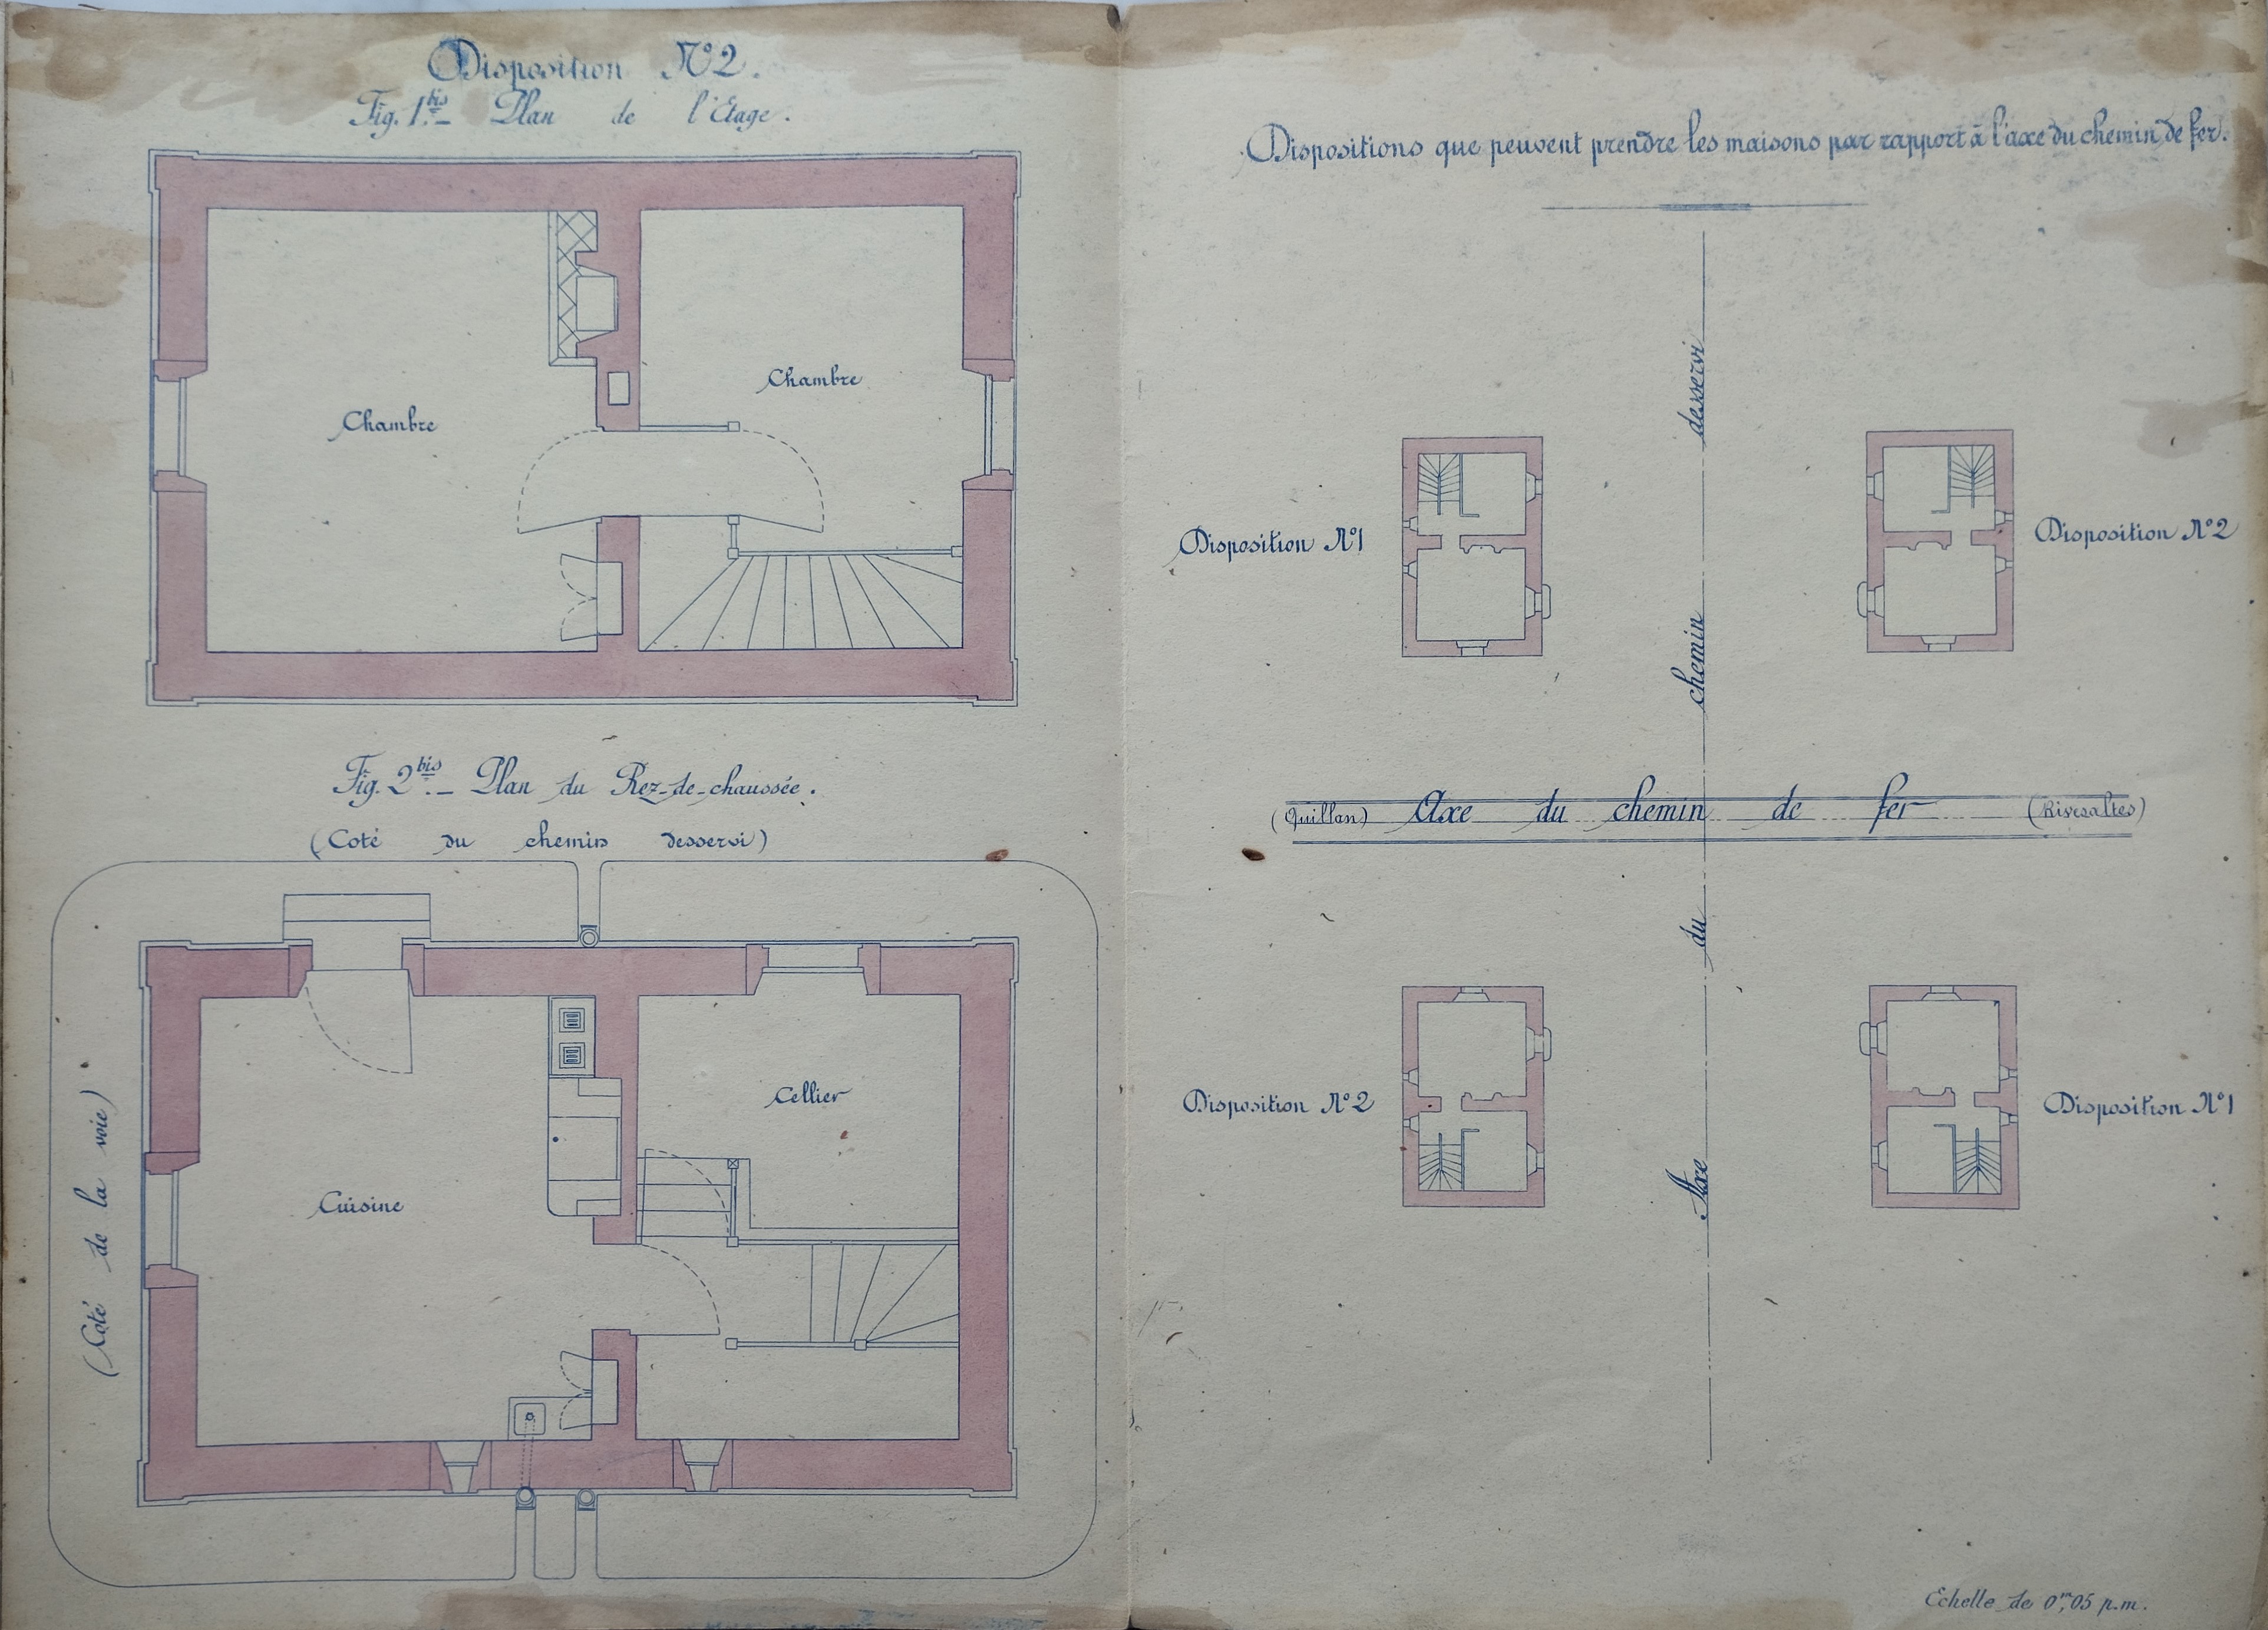 Disposition N°2.
Fig. 1bis. – Plan de l'Etage.
Chambre
Chambre
Fig. 2bis. – Plan du Rez-de-chaussée.
(Coté du chemin desservi)
(Coté de la voie)
Cuisine
Cellier
Dispositions que peuvent prendre les maisons par rapport à l'axe du chemin de fer.
Disposition N°1
Disposition N°2
(Quillan) Axe du chemin de fer (Rivesaltes)
Axe du chemin desservi
Disposition N°2
Disposition N°1
Echelle de 0m,05 p.m.